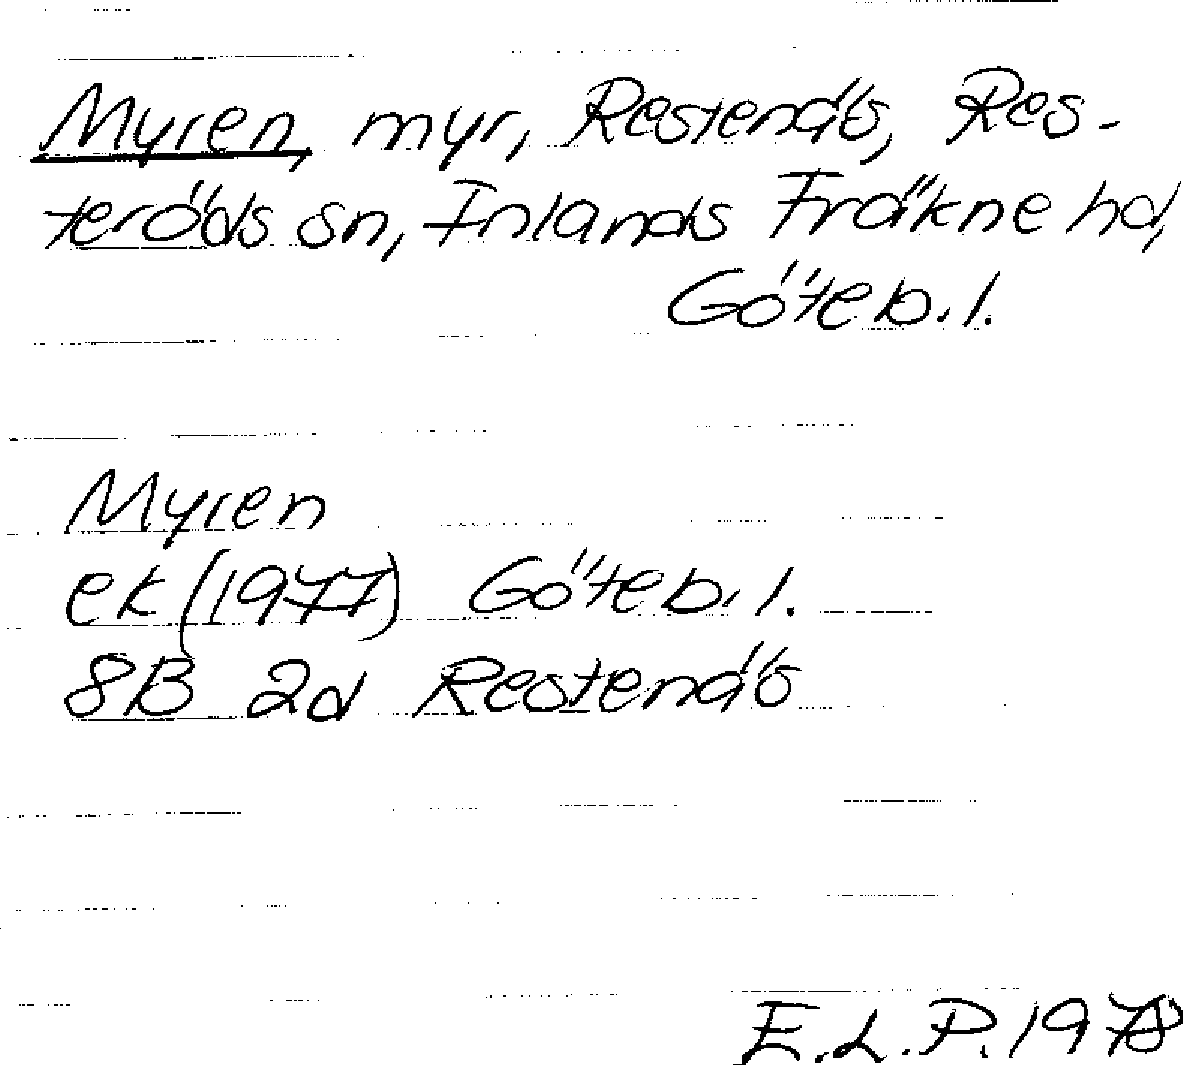 Myren, myr, Restenäs, Res-
teröds sn, Inlands Fräkne hd,
Göteb. l.
Myren
ek (1977) Göteb. l.
8B 2d Restenäs
E.L.P. 1978